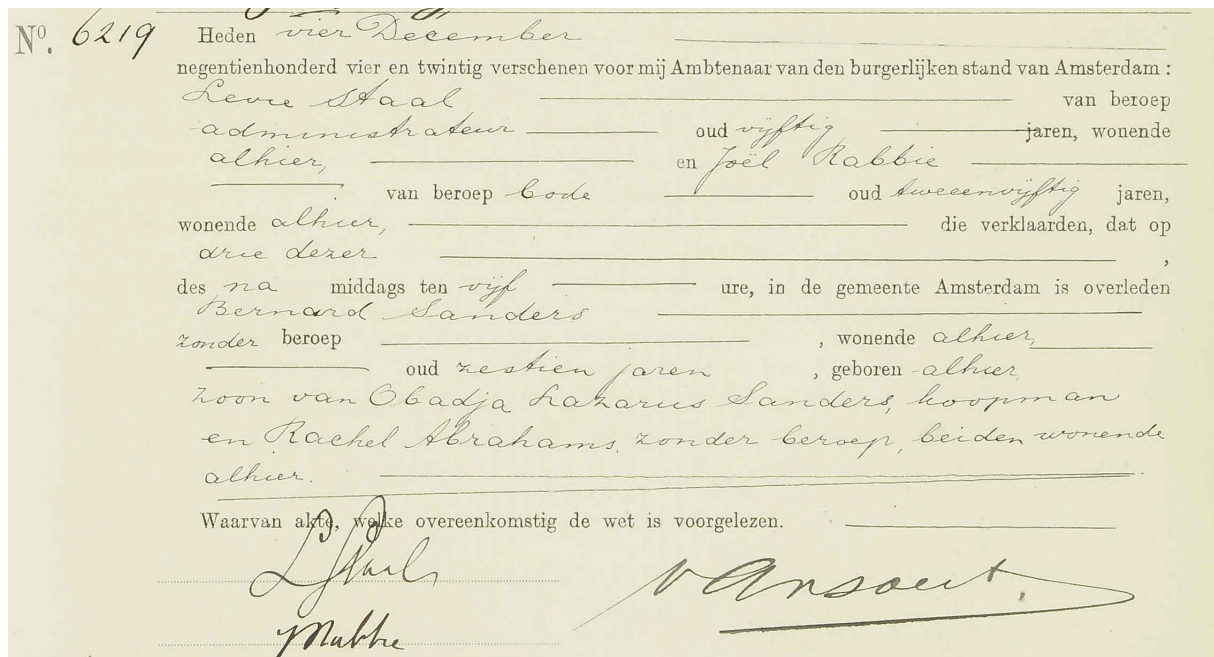 No. 6219 Heden vier December
negentienhonderd vier en twintig verschenen voor mij Ambtenaar van den burgerlijken stand van Amsterdam :
Levie Staal van beroep
administrateur oud vijftig jaren, wonende
alhier, en Joël Rabbie
van beroep bode oud tweeenvijftig jaren,
wonende alhier, die verklaarden, dat op
drie dezer ,
des na middags ten vijf ure, in de gemeente Amsterdam is overleden
Bernard Sanders
zonder beroep , wonende alhier,
oud zestien jaren , geboren alhier,
zoon van Obadja Lazarus Sanders, koopman
en Rachel Abrahams, zonder beroep, beiden wonende
alhier.
Waarvan akte, welke overeenkomstig de wet is voorgelezen.
L Staal